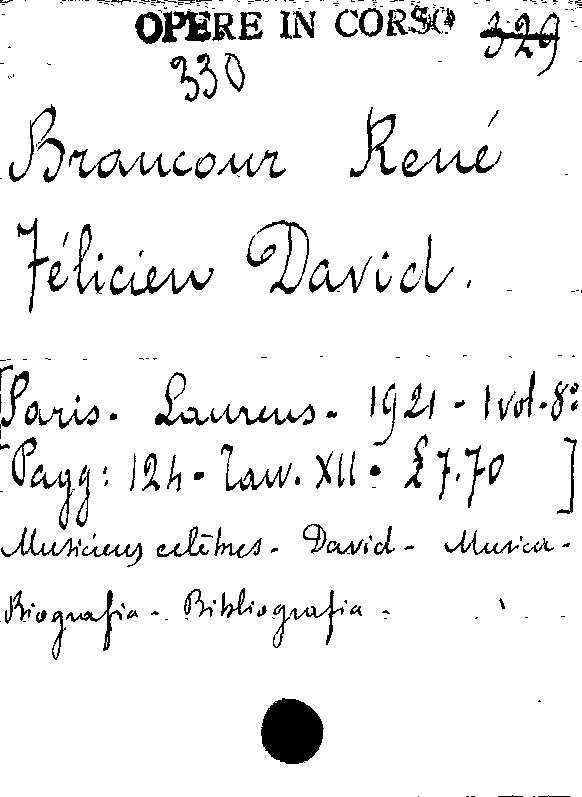 OPERE IN CORSO 329
330
Brancour René
Félicien David.
[Paris. Laurens. 1921 - 1 vol. 8º
Pagg: 124 - Tav. XII. £ 7.70 ]
Musiciens celèbres - David - Musica -
Biografia - Bibliografia -